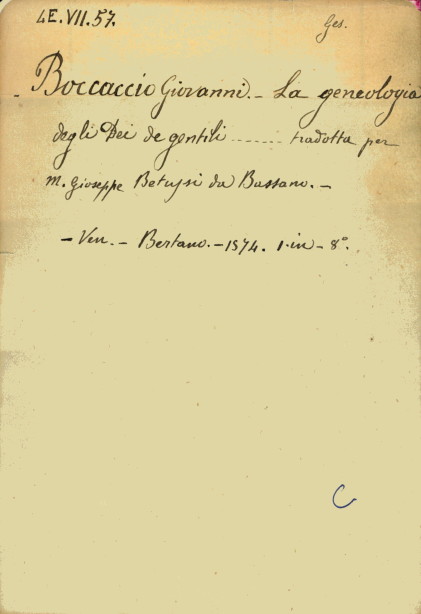 4E.VII.57.
Ges.
Boccaccio Giovanni. - La geneologia
degli Dei de gentili ...... tradotta per
M. Gioseppe Betussi da Bassano. -
- Ven. - Bertano. - 1574. 1. in - 8°.
C